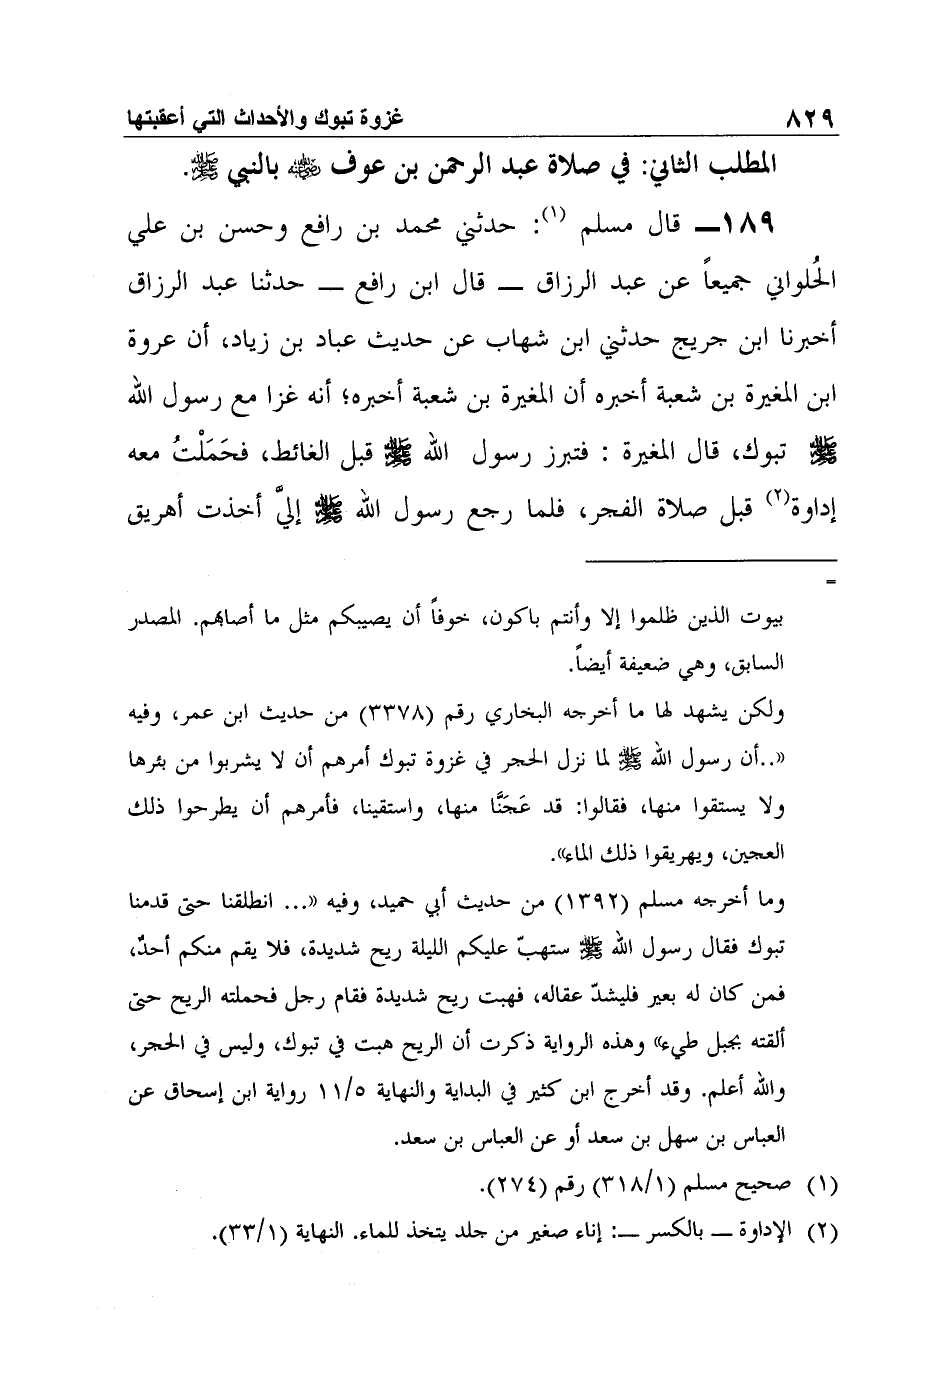 ٨٢٩ غزوة تبوك والأحداث التي أعقبتها
المطلب الثاني: في صلاة عبد الرحمن بن عوف ﵁ بالنبي ﷺ.
١٨٩ـ قال مسلم (١): حدثني محمد بن رافع وحسن بن علي
الحُلواني جميعاً عن عبد الرزاق ـ قال ابن رافع ـ حدثنا عبد الرزاق
أخبرنا ابن جريج حدثني ابن شهاب عن حديث عباد بن زياد، أن عروة
ابن المغيرة بن شعبة أخبره أن المغيرة بن شعبة أخبره؛ أنه غزا مع رسول الله
ﷺ تبوك، قال المغيرة : فتبرز رسول الله ﷺ قبل الغائط، فحَمَلْتُ معه
إداوة(٢) قبل صلاة الفجر، فلما رجع رسول الله ﷺ إليَّ أخذت أهريق
=
بيوت الذين ظلموا إلا وأنتم باكون، خوفاً أن يصيبكم مثل ما أصابهم. المصدر
السابق، وهي ضعيفة أيضاً.
ولكن يشهد لها ما أخرجه البخاري رقم (٣٣٧٨) من حديث ابن عمر، وفيه
«..أن رسول الله ﷺ لما نزل الحجر في غزوة تبوك أمرهم أن لا يشربوا من بئرها
ولا يستقوا منها، فقالوا: قد عَجَنَّا منها، واستقينا، فأمرهم أن يطرحوا ذلك
العجين، ويهريقوا ذلك الماء».
وما أخرجه مسلم (١٣٩٢) من حديث أبي حميد، وفيه «... انطلقنا حتى قدمنا
تبوك فقال رسول الله ﷺ ستهبّ عليكم الليلة ريح شديدة، فلا يقم منكم أحدٌ،
فمن كان له بعير فليشدّ عقاله، فهبت ريح شديدة فقام رجل فحملته الريح حتى
ألقته بجبل طيء» وهذه الرواية ذكرت أن الريح هبت في تبوك، وليس في الحجر،
والله أعلم. وقد أخرج ابن كثير في البداية والنهاية ١١/٥ رواية ابن إسحاق عن
العباس بن سهل بن سعد أو عن العباس بن سعد.
(١) صحيح مسلم (٣١٨/١) رقم (٢٧٤).
(٢) الإداوة ـ بالكسر ـ: إناء صغير من جلد يتخذ للماء. النهاية (٣٣/١).